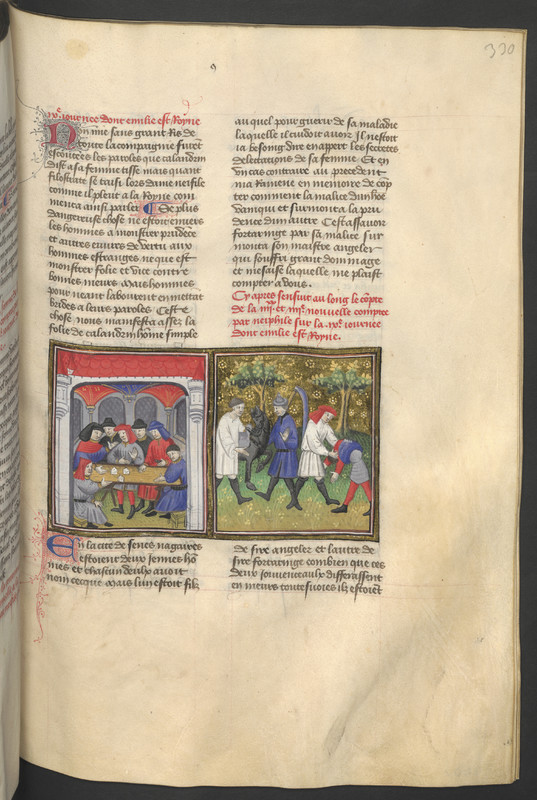 330
ix.e iournee dont emilie est Royne
Non mie sans grant Ris de
toute la compaignie furent
escoutees les paroles que calandrin
dist a sa femme tisse mais quant
filostrate se taisi lors dame neifile
comme il pleut a la Royne com
menca ainsi parler Se plus
dangereuse chose ne estoit envers
les hommes a monstrer prudece
et autres euures de vertu aux
hommes estranges ne que est
monstrer folie et vice contre
bonnes meurs mais hommes
pour neant labourent en mettat
brides a leurs paroles Ceste
chose nous manifesta assez la
folie de calandrin home simple
au quel pour guerir de sa maladie
laquelle il cuidoit auoir Il nestoit
ia besoing dire en appert les secretes
delectations de sa femme Et en
vn cas contraire au precedent
ma Ramene en memoire de cop
ter comment la malice dun hoe
vainqui et surmonta la pru
dence dun autre Cest assauoir
fortarnige par sa malice sur
monta son maistre angelier
qui souffri grant dommage
et mesaise laquelle me plaist
compter a vous.
Cy apres sensuit au long le copte
de la iiii.e nouuelle comptee
par neiphile sur la ix.e iournee
dont emilie est Royne.
En la cite de senes nagaires
estoient deux iennes ho
mes et chascun deulx auoit
nom cecque Mais lun estoit filz
de sire angelier et lautre de
sire fortarnige combien que ces
deux iouuenceaulx differassent
en meurs toutesuoies ilz estoiet